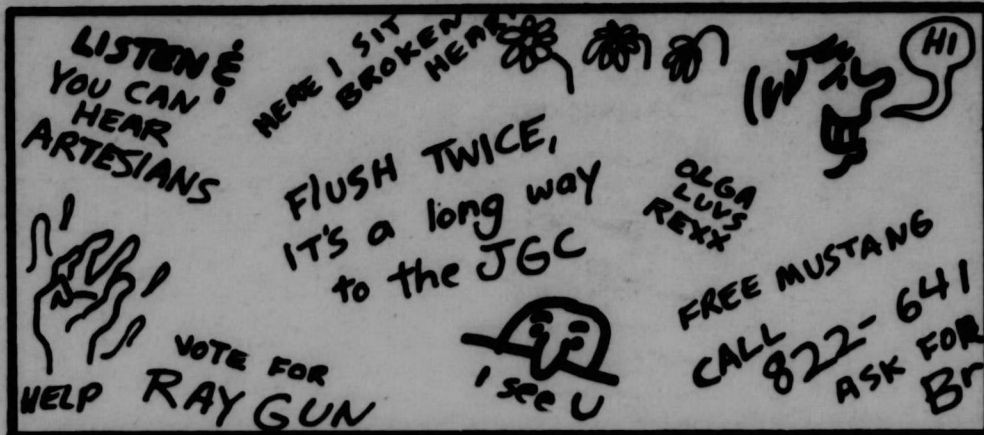 LISTEN &
YOU CAN
HEAR
ARTESIANS
HERE I SIT
BROKEN
HEAR
HI
FlUSH TWICE,
IT'S a long way
to the JGC
OLGA
LUVS
REXX
HELP
VOTE FOR
RAY GUN
I see U
FREE MUSTANG
CALL
822-641
ASK FOR
Br